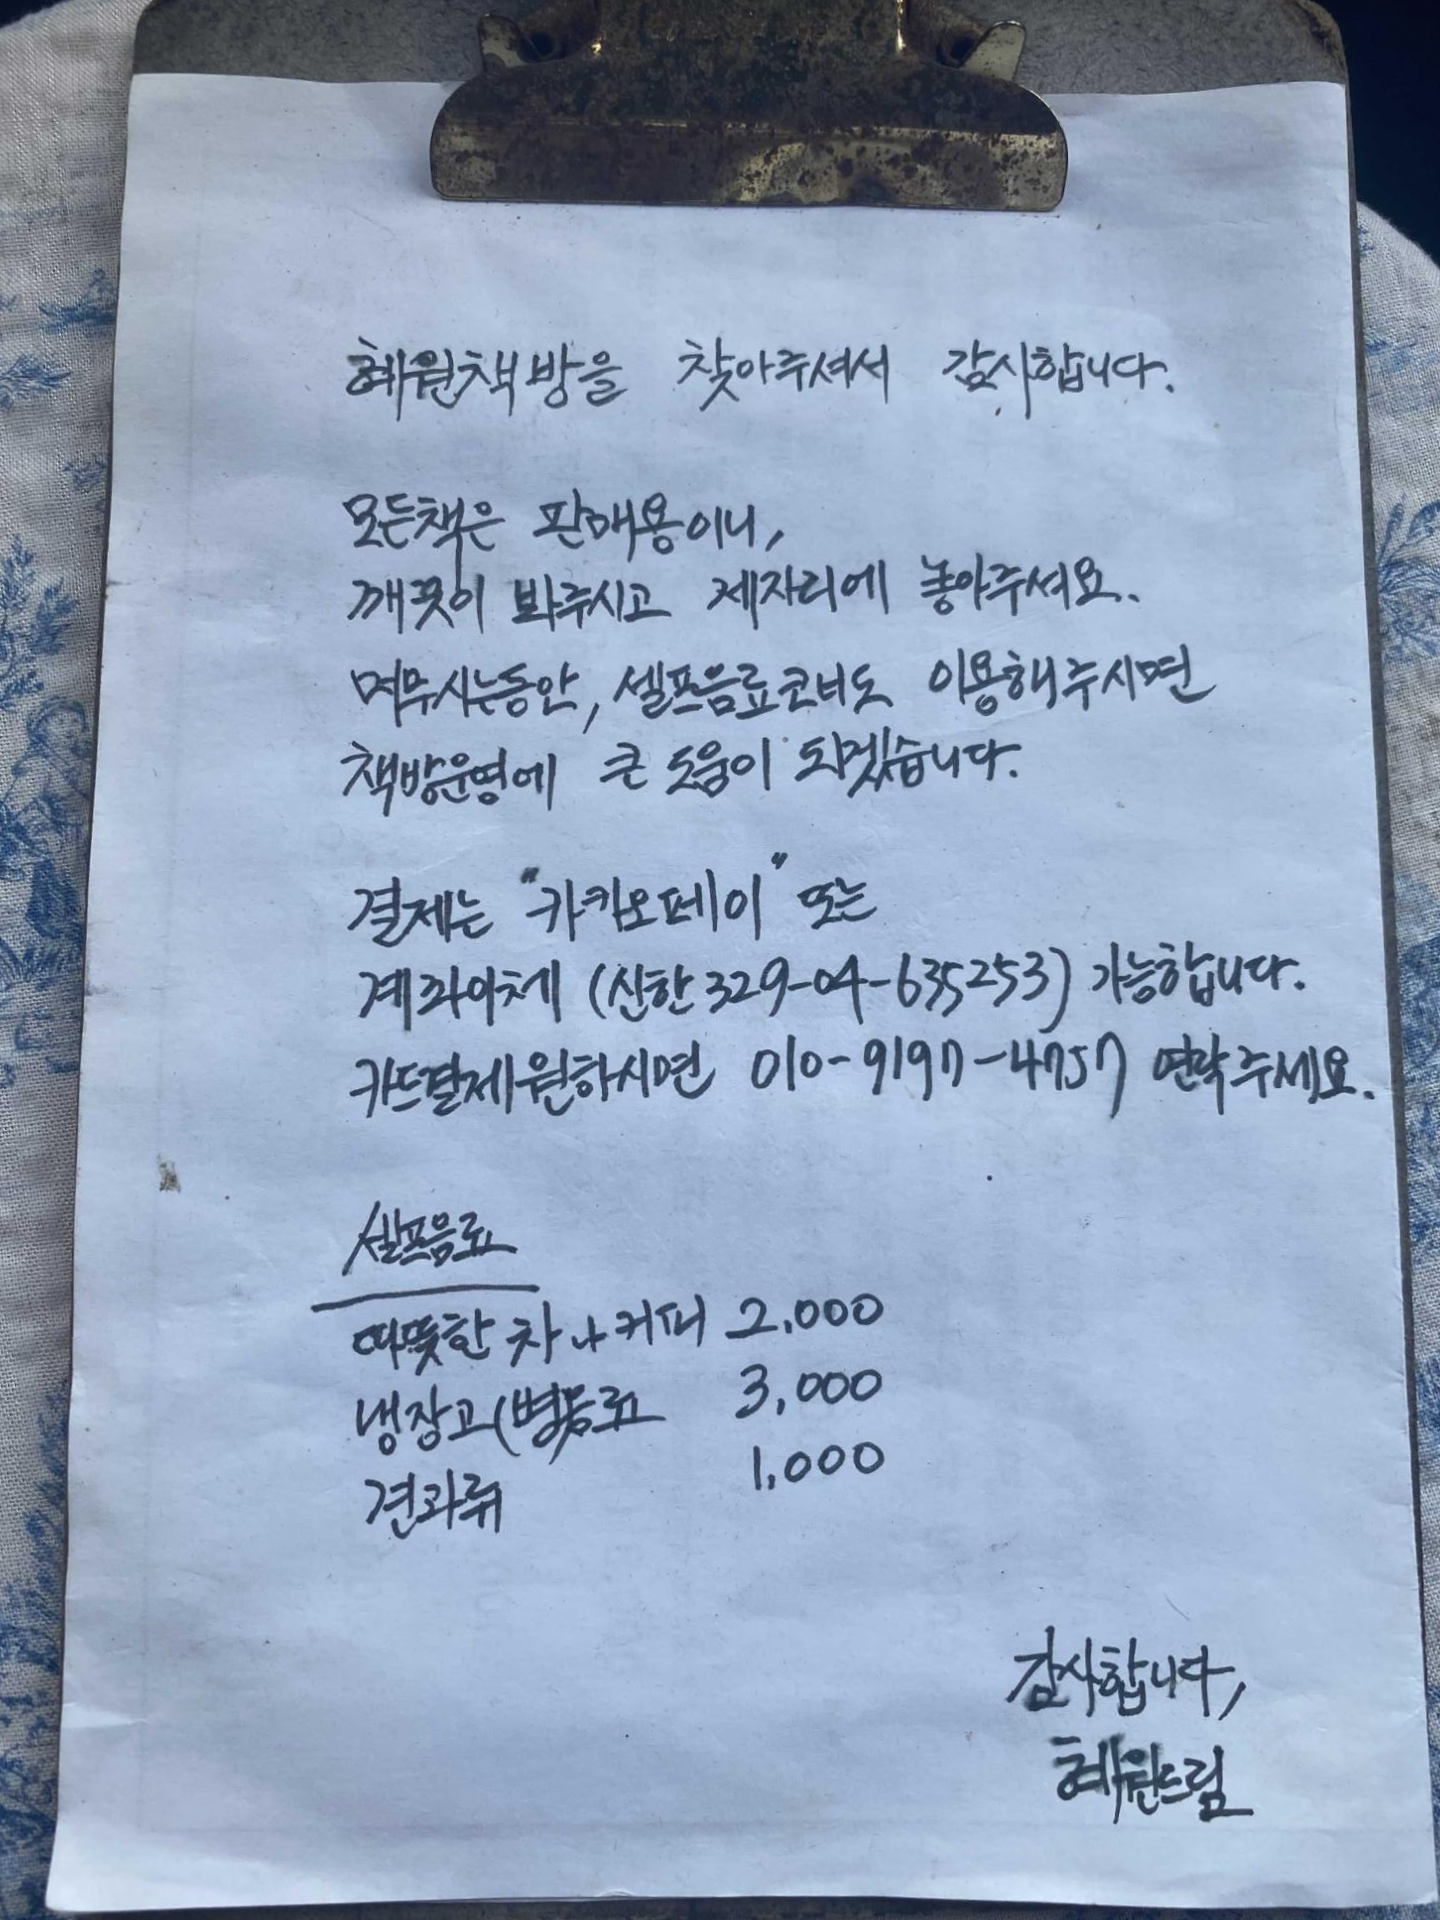 혜원책방을 찾아주셔서 감사합니다.
모든책은 판매용이니,
깨끗이 봐주시고 제자리에 놓아주셔요.
머무시는동안, 셀프음료코너도 이용해주시면
책방운영에 큰 도움이 되겠습니다.
결제는 "카카오페이" 또는
계좌이체 (신한 329-04-635253) 가능합니다.
카드결제원하시면 010-9197-4757 연락주세요.
셀프음료
따뜻한 차나 커피 2,000
냉장고(병음료 3,000
견과류 1,000
감사합니다,
혜원드림